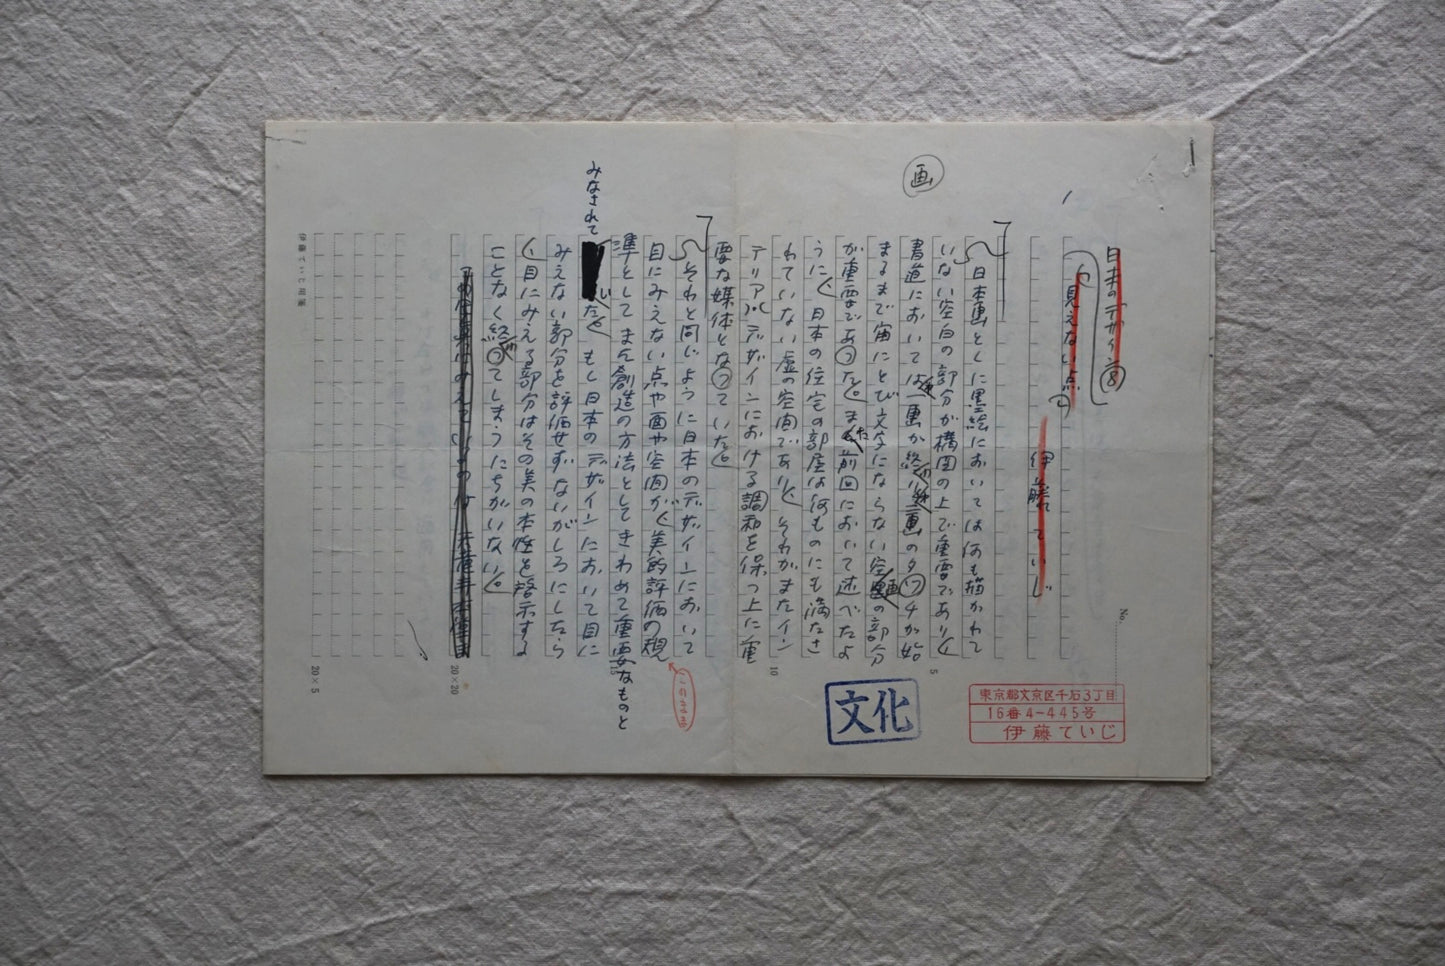 画
No.
日本のデザイン⑧
見えない点
伊藤ていじ
日本画とくに墨絵においては何も描かれて
いない空白の部分が構図の上で重要であり、
書道においては一画が終り、画のタッチが始
まるまで宙にとび文字にならない空画の部分
が重要であった。また前回において述べたよ
うに、日本の住宅の部屋は何ものにも満たさ
れていない虚の空間であり、それがまたイン
テリアルデザインにおける調和を保つ上に重
要な媒体となっていた。
それと同じように日本のデザインにおいて
目にみえない点や面や空間が、美的評価の規
準としてまた創造の方法としてきわめて重要なものと
みなされて
じた。もし日本のデザインにおいて目に
みえない部分を評価せずないがしろにしたら
、目にみえる部分はその美の本性を啓示する
ことなく終ってしまうにちがいない。
5
10
15
20×20
20×5
伊藤ていじ用箋
文化
東京都文京区千石3丁目
16番4-445号
伊藤ていじ